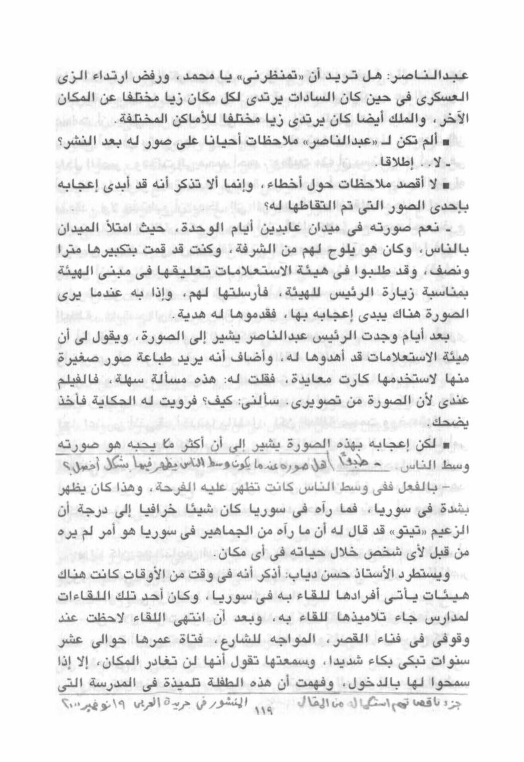 عبدالناصر: هل تريد أن «تمنظرنى» يا محمد، ورفض ارتداء الزى
العسكرى فى حين كان السادات يرتدى لكل مكان زيا مختلفا عن المكان
الآخر، والملك أيضا كان يرتدى زيا مختلفا للأماكن المختلفة.
■ ألم تكن لـ «عبدالناصر» ملاحظات أحيانا على صور له بعد النشر؟
ـ لا.. إطلاقا.
■ لا أقصد ملاحظات حول أخطاء، وإنما ألا تذكر أنه قد أبدى إعجابه
بإحدى الصور التى تم التقاطها له؟
ـ نعم صورته فى ميدان عابدين أيام الوحدة، حيث امتلأ الميدان
بالناس، وكان هو يلوح لهم من الشرفة، وكنت قد قمت بتكبيرها مترا
ونصف، وقد طلبوا فى هيئة الاستعلامات تعليقها فى مبنى الهيئة
بمناسبة زيارة الرئيس للهيئة، فأرسلتها لهم، وإذا به عندما يرى
الصورة هناك يبدى إعجابه بها، فقدموها له هدية.
بعد أيام وجدت الرئيس عبدالناصر يشير إلى الصورة، ويقول لى أن
هيئة الاستعلامات قد أهدوها له، وأضاف أنه يريد طباعة صور صغيرة
منها لاستخدمها كارت معايدة، فقلت له: هذه مسألة سهلة، فالفيلم
عندى لأن الصورة من تصويرى، سألنى: كيف؟ فرويت له الحكاية فأخذ
يضحك.
■ لكن إعجابه بهذه الصورة يشير إلى أن أكثر ما يحبه هو صورته
وسط الناس. ـ طبعًا / هل صوره عندما يكون وسط الناس يظهر فيها بشكل أفضل؟
- بالفعل ففى وسط الناس كانت تظهر عليه الفرحة، وهذا كان يظهر
بشدة فى سوريا، فما رآه فى سوريا كان شيئا خرافيا إلى درجة أن
الزعيم «تيتو» قد قال له أن ما رآه من الجماهير فى سوريا هو أمر لم يره
من قبل لأى شخص خلال حياته فى أى مكان.
ويستطرد الأستاذ حسن دياب: أذكر أنه فى وقت من الأوقات كانت هناك
هيئات يأتى أفرادها للقاء به فى سوريا، وكان أحد تلك اللقاءات
لمدارس جاء تلاميذها للقاء به، وبعد أن انتهى اللقاء لاحظت عند
وقوفى فى فناء القصر، المواجه للشارع، فتاة عمرها حوالى عشر
سنوات تبكى بكاء شديدا، وسمعتها تقول أنها لن تغادر المكان، إلا إذا
سمحوا لها بالدخول، وفهمت أن هذه الطفلة تلميذة فى المدرسة التى
جزء ناقص تم استكماله من المقال المنشور فى جريدة العربى ١٩ نوفمبر ٢٠٠٠
١١٩